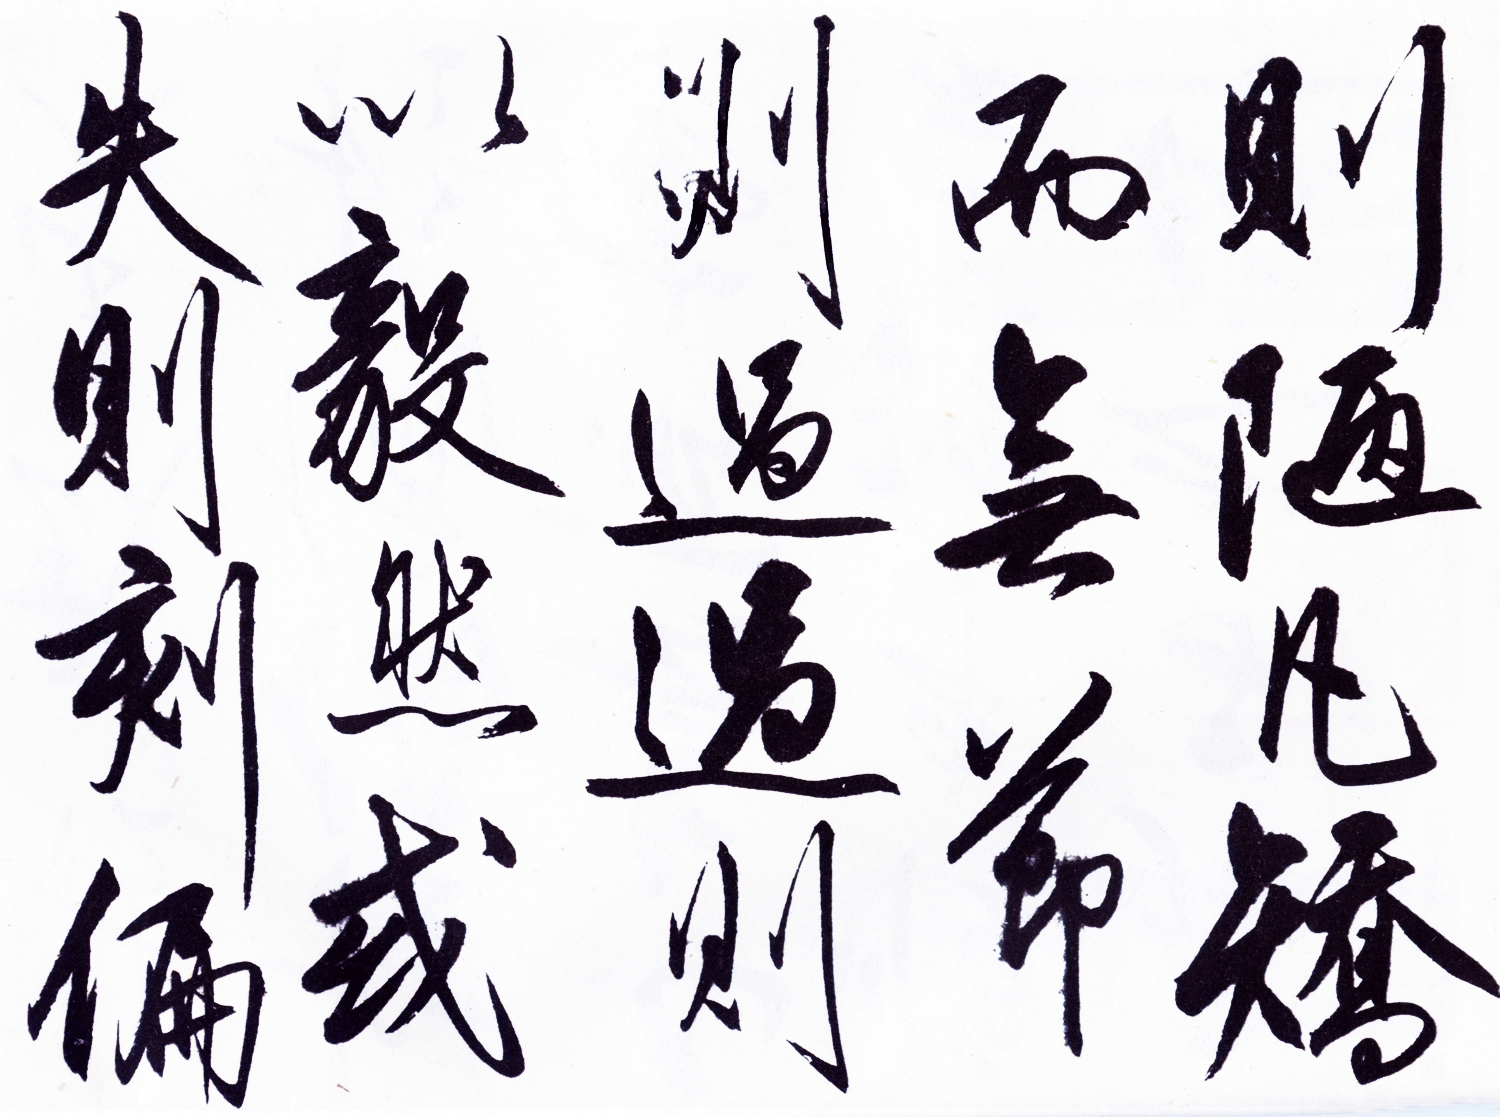 則陋凡矯
而無節
則過過則
以毅然或
失則刻偏